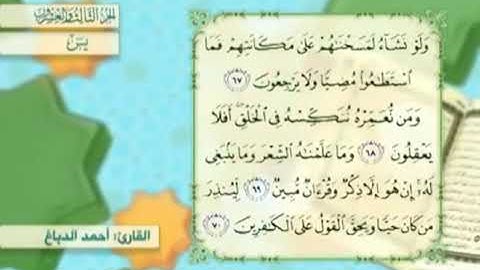 الجزء الثالث والعشرون
يس
وَلَوْ نَشَاءُ لَمَسَخْنَٰهُمْ عَلَىٰ مَكَانَتِهِمْ فَمَا
ٱسْتَطَٰعُوا۟ مُضِيًّا وَلَا يَرْجِعُونَ ٦٧
وَمَن نُّعَمِّرْهُ نُنَكِّسْهُ فِى ٱلْخَلْقِ أَفَلَا
يَعْقِلُونَ ٦٨ وَمَا عَلَّمْنَٰهُ ٱلشِّعْرَ وَمَا يَنۢبَغِى
لَهُۥٓ إِنْ هُوَ إِلَّا ذِكْرٌ وَقُرْءَانٌ مُّبِينٌ ٦٩ لِّيُنذِرَ
مَن كَانَ حَيًّا وَيَحِقَّ ٱلْقَوْلُ عَلَى ٱلْكَٰفِرِينَ ٧٠
القارئ: أحمد الدباغ